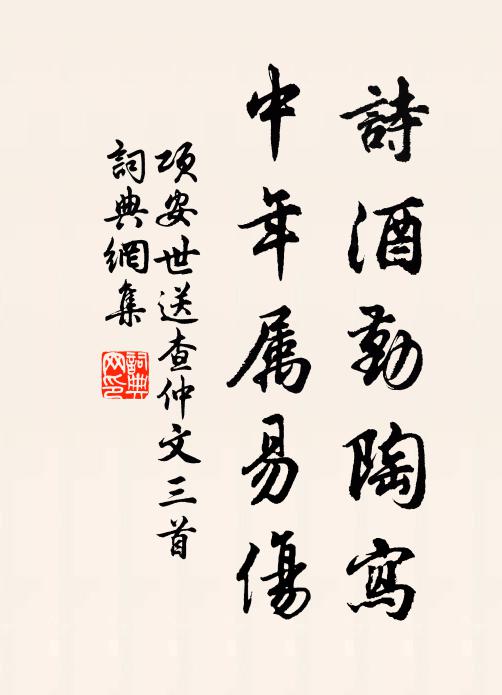 詩酒勤陶寫
中年属易傷
項安世送查仲文三首
詞典網集
詞典
网印